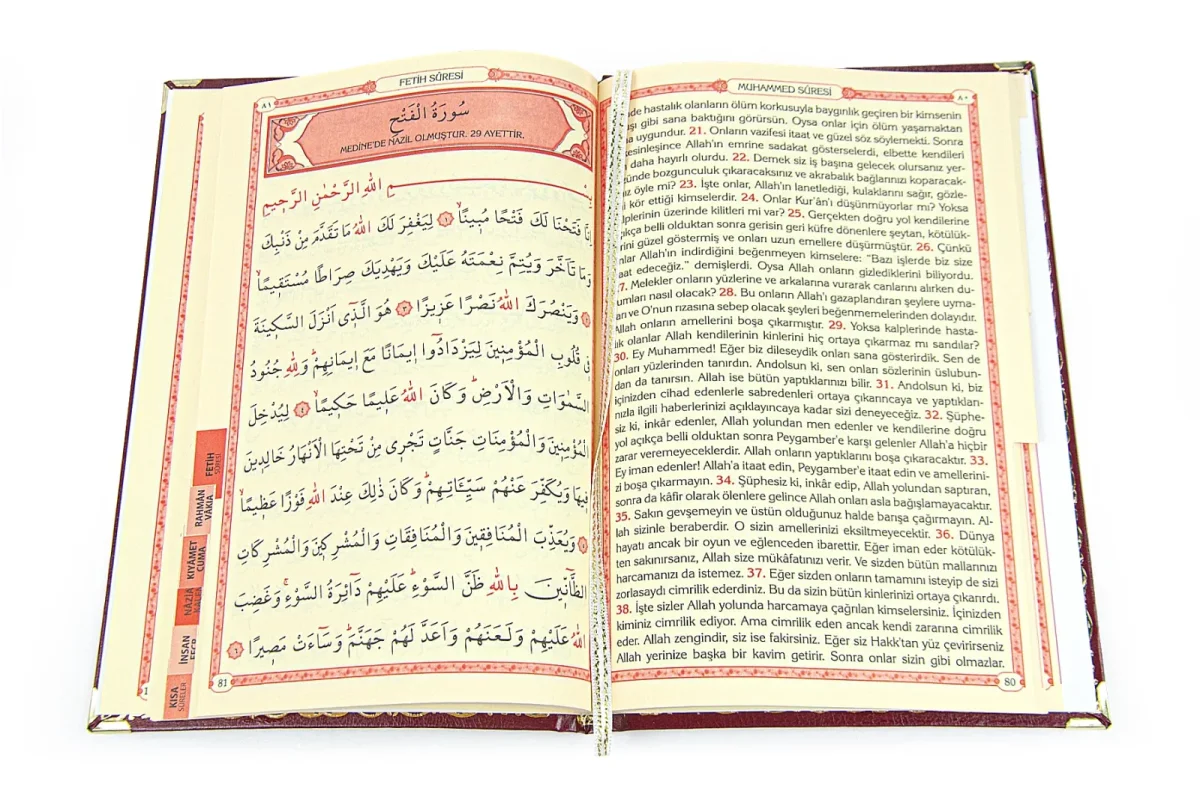 MUHAMMED SÛRESİ
٨٠
hastalık olanların ölüm korkusuyla baygınlık geçiren bir kimsenin
gibi sana baktığını görürsün. Oysa onlar için ölüm yaşamaktan
uygundur. 21. Onların vazifesi itaat ve güzel söz söylemekti. Sonra
kesinleşince Allah'ın emrine sadakat gösterselerdi, elbette kendileri
daha hayırlı olurdu. 22. Demek siz iş başına gelecek olursanız yer-
bozgunculuk çıkaracaksınız ve akrabalık bağlarınızı koparacak-
öyle mi? 23. İşte onlar, Allah'ın lanetlediği, kulaklarını sağır, gözle-
kör ettiği kimselerdir. 24. Onlar Kur'ân'ı düşünmüyorlar mı? Yoksa
kalplerinin üzerinde kilitleri mi var? 25. Gerçekten doğru yol kendilerine
açıkça belli olduktan sonra gerisin geri küfre dönenlere şeytan, kötülük-
güzel göstermiş ve onları uzun emellere düşürmüştür. 26. Çünkü
onlar Allah'ın indirdiğini beğenmeyen kimselere: "Bazı işlerde biz size
itaat edeceğiz." demişlerdi. Oysa Allah onların gizlediklerini biliyordu.
27. Melekler onların yüzlerine ve arkalarına vurarak canlarını alırken du-
rumları nasıl olacak? 28. Bu onların Allah'ı gazaplandıran şeylere uyma-
ve O'nun rızasına sebep olacak şeyleri beğenmemelerinden dolayıdır.
Allah onların amellerini boşa çıkarmıştır. 29. Yoksa kalplerinde hasta-
lık olanlar Allah kendilerinin kinlerini hiç ortaya çıkarmaz mı sandılar?
30. Ey Muhammed! Eğer biz dileseydik onları sana gösterirdik. Sen de
onları yüzlerinden tanırdın. Andolsun ki, sen onları sözlerinin üslubun-
dan da tanırsın. Allah ise bütün yaptıklarınızı bilir. 31. Andolsun ki, biz
içinizden cihad edenlerle sabredenleri ortaya çıkarıncaya ve yaptıkları-
nızla ilgili haberlerinizi açıklayıncaya kadar sizi deneyeceğiz. 32. Şüphe-
siz ki, inkâr edenler, Allah yolundan men edenler ve kendilerine doğru
yol açıkça belli olduktan sonra Peygamber'e karşı gelenler Allah'a hiçbir
zarar veremeyeceklerdir. Allah onların yaptıklarını boşa çıkaracaktır. 33.
Ey iman edenler! Allah'a itaat edin, Peygamber'e itaat edin ve amellerini-
zi boşa çıkarmayın. 34. Şüphesiz ki, inkâr edip, Allah yolundan saptıran,
sonra da kâfir olarak ölenlere gelince Allah onları asla bağışlamayacaktır.
35. Sakın gevşemeyin ve üstün olduğunuz halde barışa çağırmayın. Al-
lah sizinle beraberdir. O sizin amellerinizi eksiltmeyecektir. 36. Dünya
hayatı ancak bir oyun ve eğlenceden ibarettir. Eğer iman eder kötülük-
ten sakınırsanız, Allah size mükâfatınızı verir. Ve sizden bütün mallarınızı
harcamanızı da istemez. 37. Eğer sizden onların tamamını isteyip de sizi
zorlasaydı cimrilik ederdiniz. Bu da sizin bütün kinlerinizi ortaya çıkarırdı.
38. İşte sizler Allah yolunda harcamaya çağrılan kimselersiniz. İçinizden
kiminiz cimrilik ediyor. Ama cimrilik eden ancak kendi zararına cimrilik
eder. Allah zengindir, siz ise fakirsiniz. Eğer siz Hakk'tan yüz çevirirseniz
Allah yerinize başka bir kavim getirir. Sonra onlar sizin gibi olmazlar.
80
FETİH SÛRESİ
٨١
سُورَةُ الْفَتْحِ
MEDİNE'DE NAZİL OLMUŞTUR. 29 AYETTİR.
بِسْمِ اللهِ الرَّحْمٰنِ الرَّح۪يمِ
اِنَّا فَتَحْنَا لَكَ فَتْحًا مُب۪ينًاۙ ﴿١﴾ لِيَغْفِرَ لَكَ اللهُ مَا تَقَدَّمَ مِنْ ذَنْبِكَ
وَمَا تَاَخَّرَ وَيُتِمَّ نِعْمَتَهُ عَلَيْكَ وَيَهْدِيَكَ صِرَاطًا مُسْتَق۪يمًاۙ
﴿٢﴾ وَيَنْصُرَكَ اللهُ نَصْرًا عَز۪يزًا ﴿٣﴾ هُوَ الَّذ۪ٓي اَنْزَلَ السَّك۪ينَةَ
ف۪ي قُلُوبِ الْمُؤْمِن۪ينَ لِيَزْدَادُٓوا ا۪يمَانًا مَعَ ا۪يمَانِهِمْۜ وَلِلّٰهِ جُنُودُ
السَّمٰوَاتِ وَالْاَرْضِۜ وَكَانَ اللهُ عَل۪يمًا حَك۪يمًاۙ ﴿٤﴾ لِيُدْخِلَ
الْمُؤْمِن۪ينَ وَالْمُؤْمِنَاتِ جَنَّاتٍ تَجْر۪ي مِنْ تَحْتِهَا الْاَنْهَارُ خَالِد۪ينَ
ف۪يهَا وَيُكَفِّرَ عَنْهُمْ سَيِّـَٔاتِهِمْۜ وَكَانَ ذٰلِكَ عِنْدَ اللهِ فَوْزًا عَظ۪يمًاۙ
﴿٥﴾ وَيُعَذِّبَ الْمُنَافِق۪ينَ وَالْمُنَافِقَاتِ وَالْمُشْرِك۪ينَ وَالْمُشْرِكَاتِ
الظَّٓانّ۪ينَ بِاللهِ ظَنَّ السَّوْءِۜ عَلَيْهِمْ دَٓائِرَةُ السَّوْءِۚ وَغَضِبَ
اللهُ عَلَيْهِمْ وَلَعَنَهُمْ وَاَعَدَّ لَهُمْ جَهَنَّمَۜ وَسَٓاءَتْ مَص۪يرًا ﴿٦﴾
81
FETİH
SÛRESİ
RAHMÂN
VAKIA
KIYAMET
CUMA
NÂZİA
İNSAN
KISA
SÛRELER